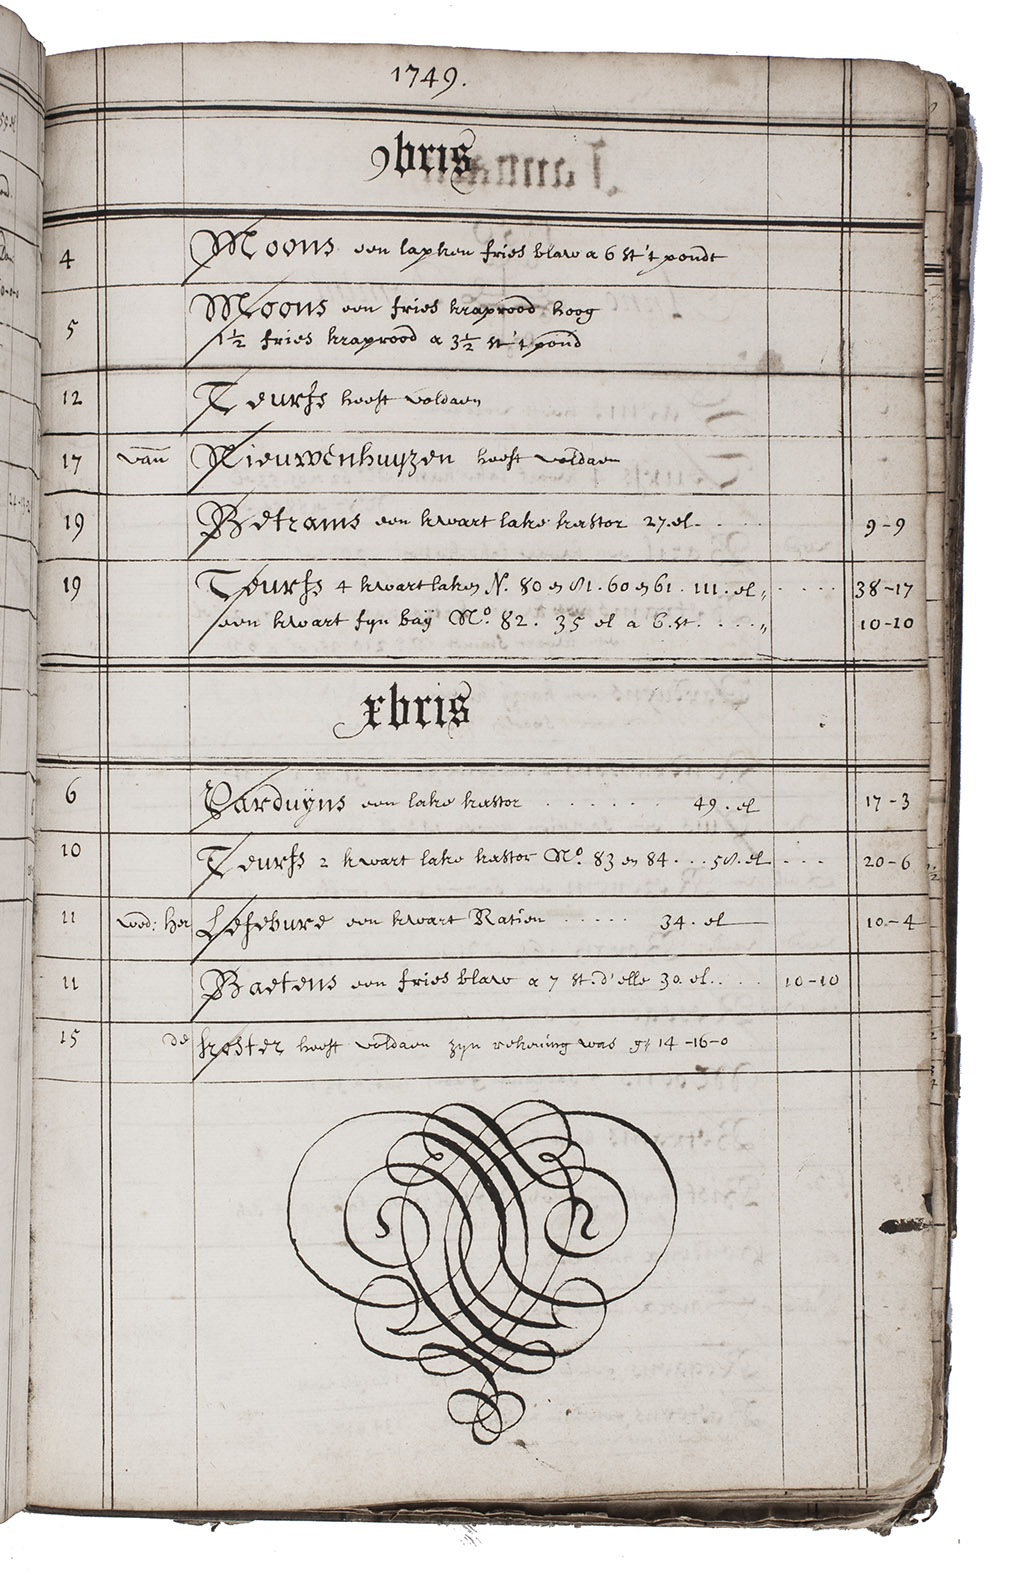 1749.
9bris
4 Moons een laphen fries blaw a 6 st 't pondt
5 Moons een fries kraprood hoog
1½ fries kraprood a 3½ st 't pond
12 Teurfs heeft voldaen
17 van Nieuwenhuyzen heeft voldaen
19 Betrams een kwart lake kastor 27. el 9-9
19 Teurfs 4 kwart laken N. 80 en 81. 60 en 61. 111. el 38-17
een kwart fyn bay No. 82. 35 el a 6. st. 10-10
xbris
6 Varduyns een lake kastor 49. el 17-3
10 Teurfs 2 kwart lake kastor No. 83 en 84 58. el 20-6
11 wed: her Lefebure een kwart Ratien 34. el 10-4
11 Baetens een fries blaw a 7 st. d'elle 30. el. 10-10
15 de koster heeft voldaen zyn rekening was gl 14-16-0